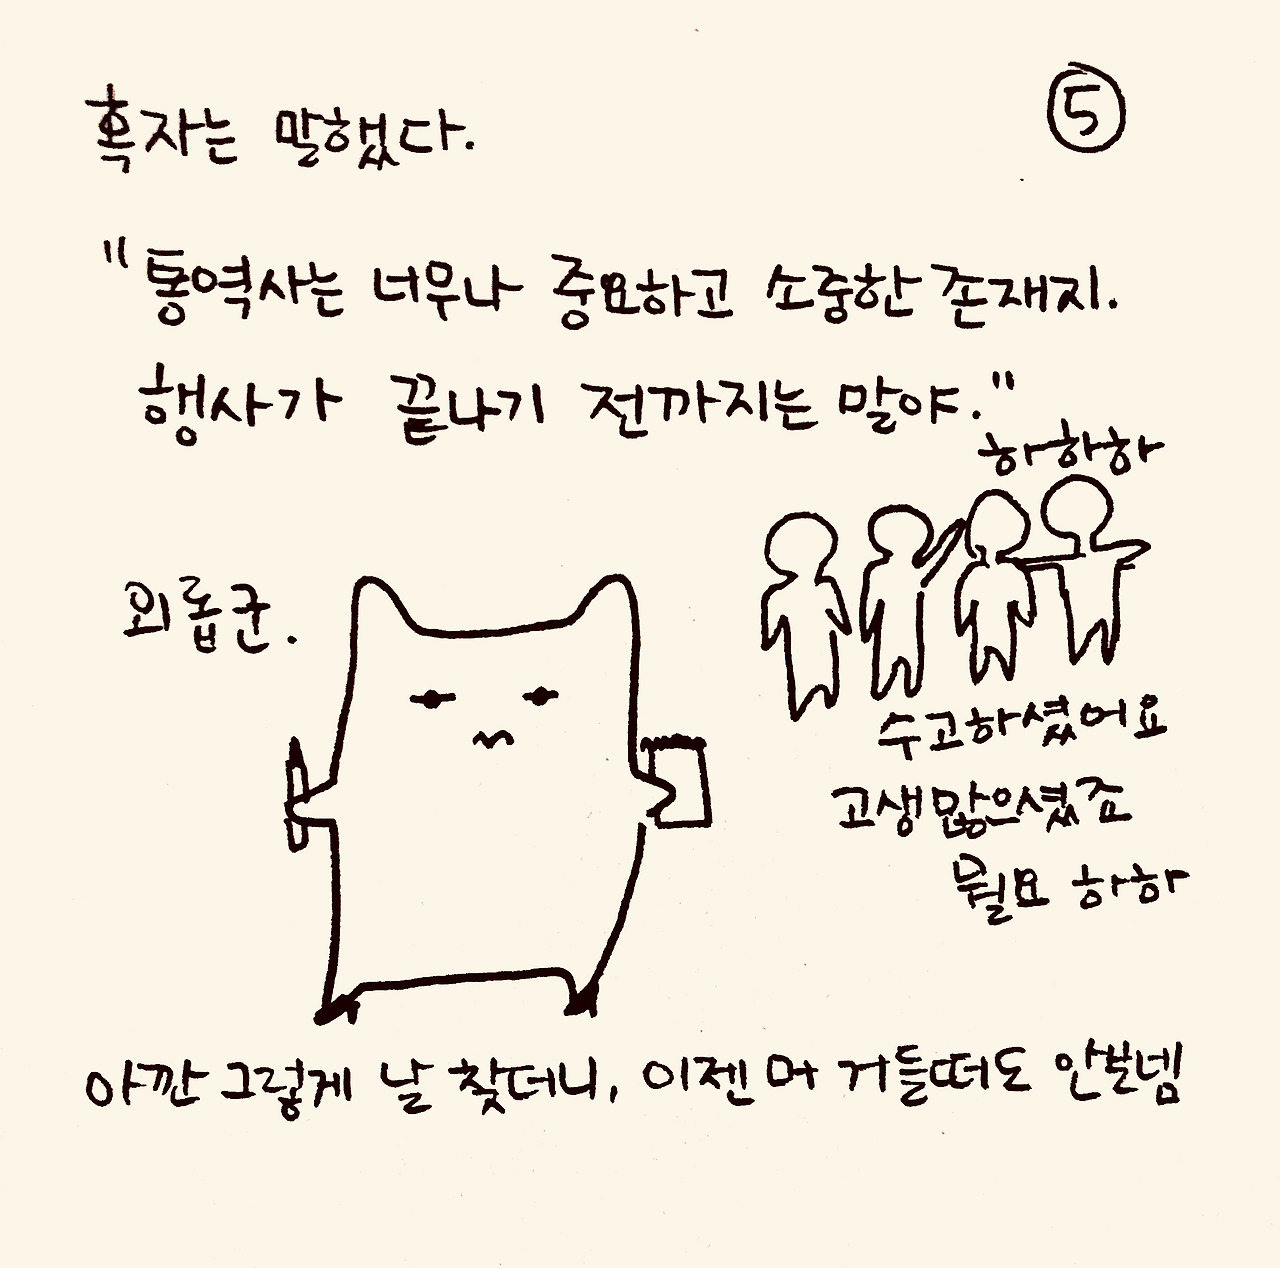 혹자는 말했다.
⑤
"통역사는 너무나 중요하고 소중한 존재지.
행사가 끝나기 전까지는 말야."
하하하
외롭군.
수고하셨어요
고생많으셨죠
뭘요 하하
아깐 그렇게 날 찾더니, 이젠 머 거들떠도 안보넴